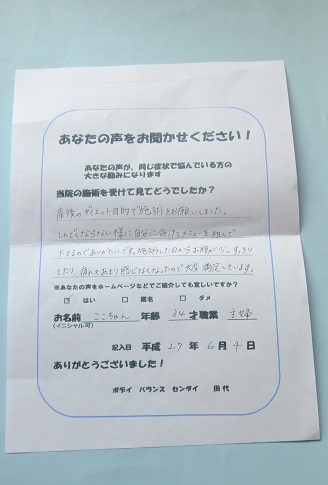 あなたの声をお聞かせください！
あなたの声が、同じ症状で悩んでいる方の
大きな励みになります
当院の施術を受けて見てどうでしたか？
産後のダイエット目的で施術をお願いしました。
しんどくならない様に自分に合ったメニューを組んで
下さるのでありがたいです。施術した日からお腹がスッキリ
したり、疲れもあまり感じなくなったので大変満足しています。
※あなたの声をホームページなどでご紹介しても宜しいですか？
☑ はい □ 匿名 □ ダメ
お名前 ここちゃん 年齢 34 才 職業 主婦
(イニシャル可)
記入日 平成 27 年 6 月 4 日
ありがとうございました！
ボディ バランス センダイ 田代